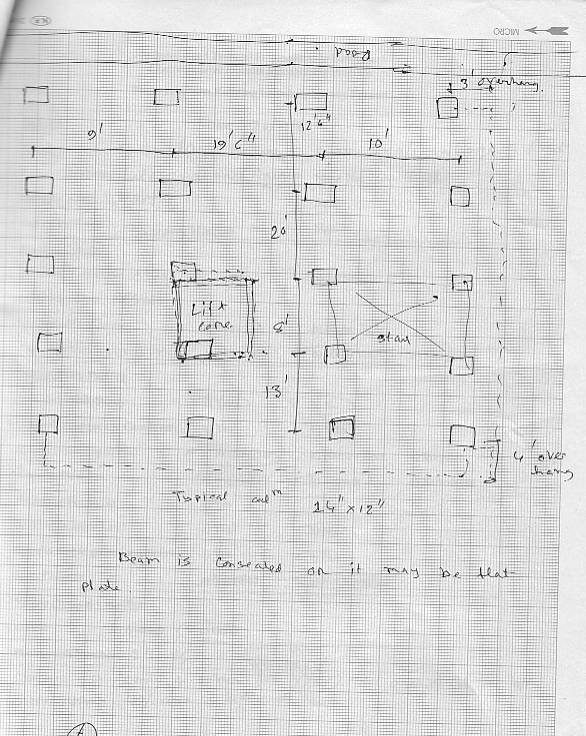 MICRO
Road
3' overhang.
12'6"
9'
19'6"
10'
20'
Lift
core
8'
stair
13'
4' over
hang
Typical colm 14"x12"
Beam is concealed or it may be flat
plate.